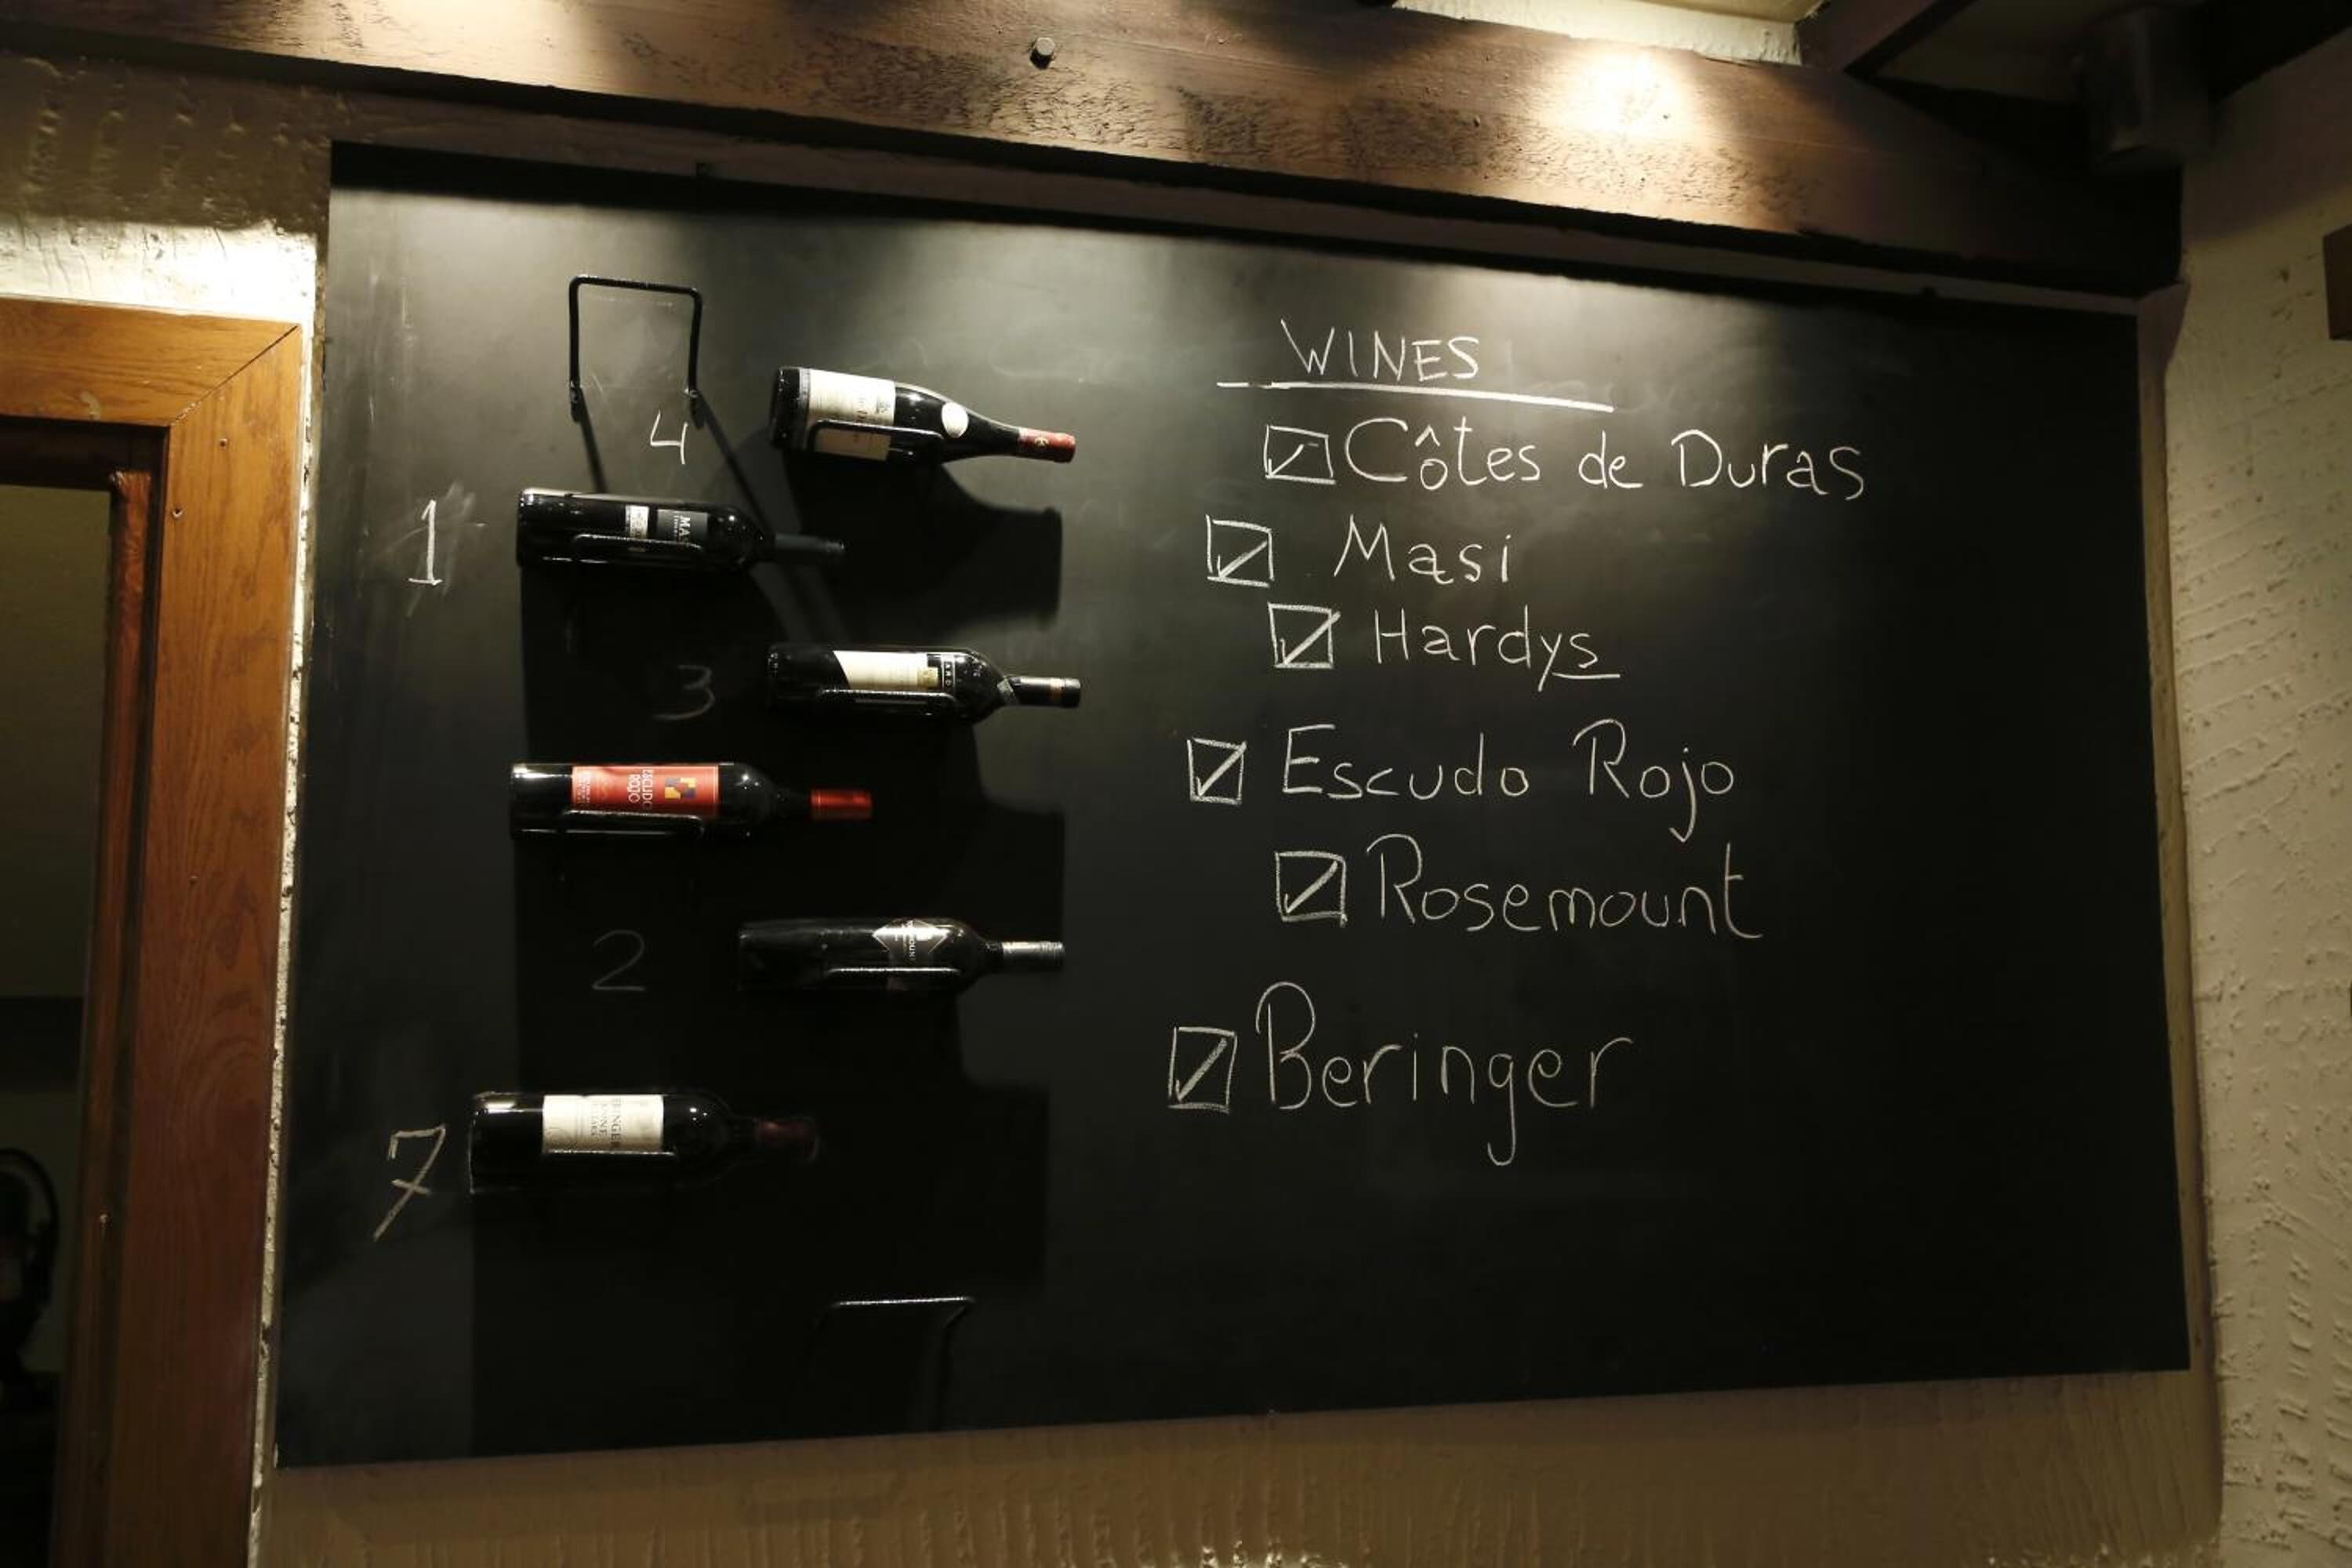 WINES
4
Côtes de Duras
1
MAS
Masi
Hardys
3
ESCUDO
ROJO
Escudo Rojo
Rosemount
2
Beringer
BERINGER
7